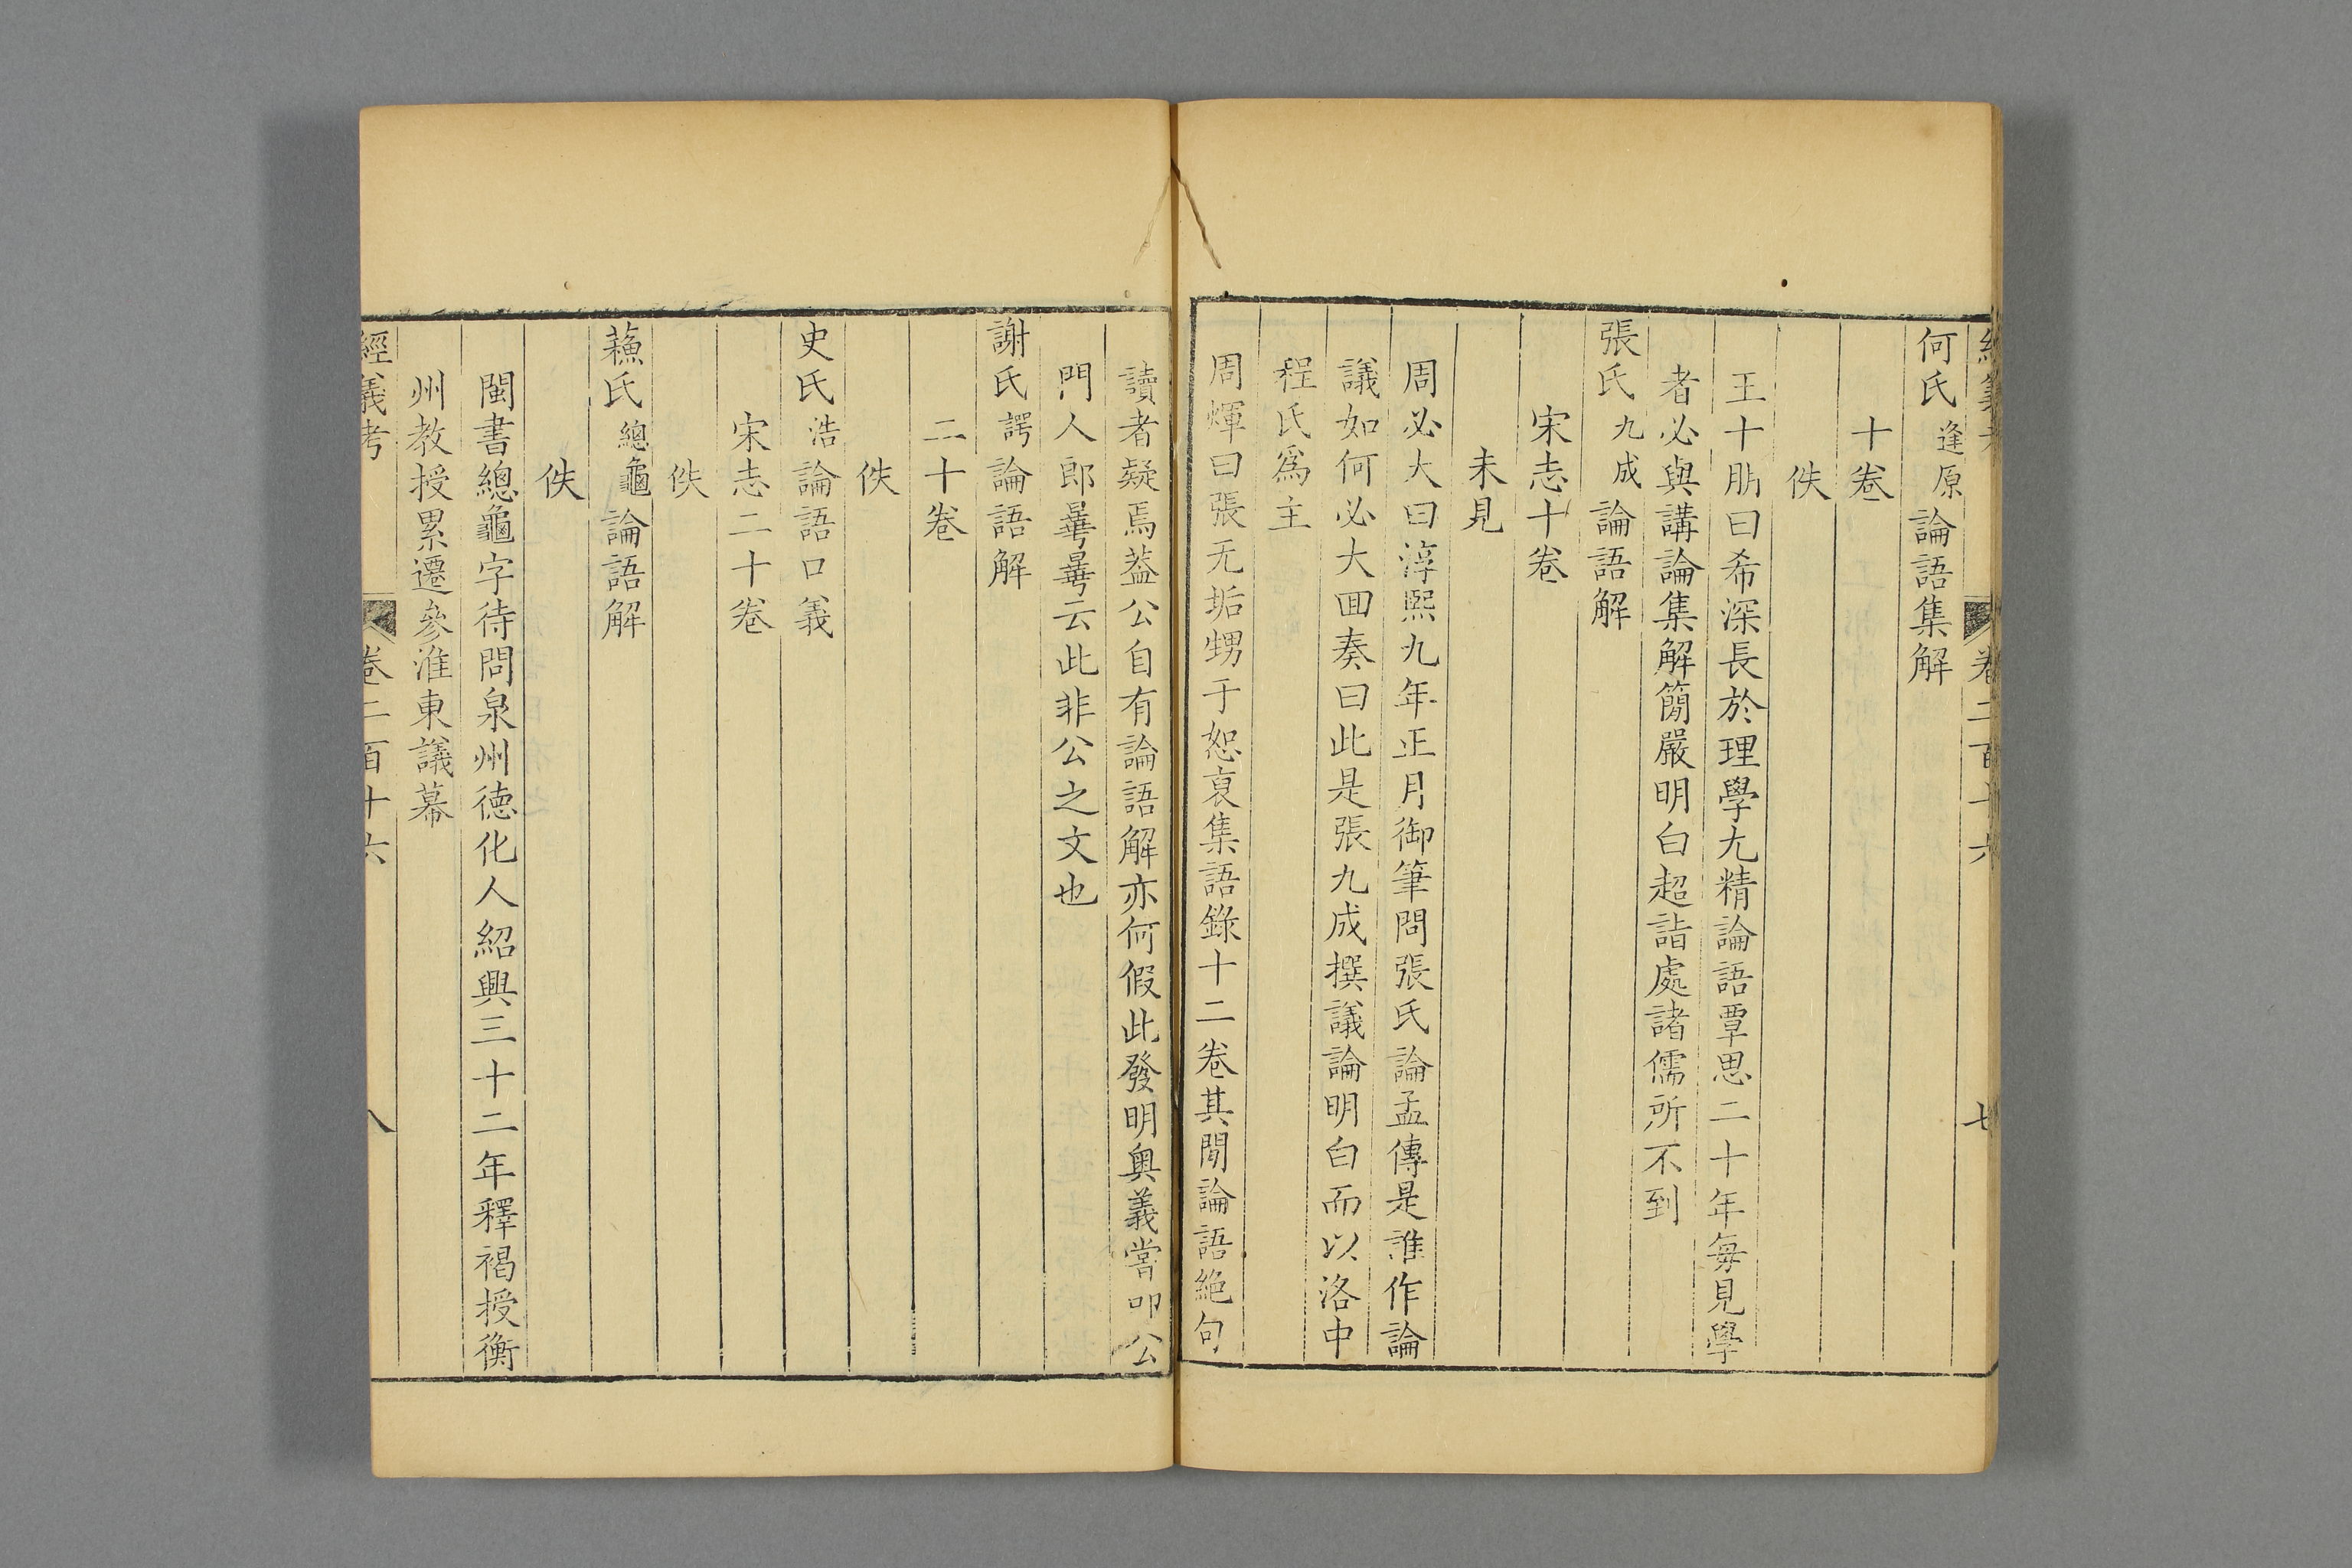 經義考 卷二百十六 七
何氏逢原論語集解
十卷
佚
王十朋曰希深長於理學尢精論語覃思二十年每見學
者必與講論集解簡嚴明白超詣處諸儒所不到
張氏九成論語解
宋志十卷
未見
周必大曰淳熙九年正月御筆問張氏論孟傳是誰作論
議如何必大回奏曰此是張九成撰議論明白而以洛中
程氏爲主
周煇曰張无垢甥于恕裒集語錄十二卷其間論語絶句
讀者疑焉葢公自有論語解亦何假此發明奧義嘗叩公
門人郎曅曅云此非公之文也
謝氏諤論語解
二十卷
佚
史氏浩論語口義
宋志二十卷
佚
蘓氏總龜論語解
佚
閩書總龜字待問泉州德化人紹興三十二年釋褐授衡
州教授累遷參淮東議幕
經義考 卷二百十六 八